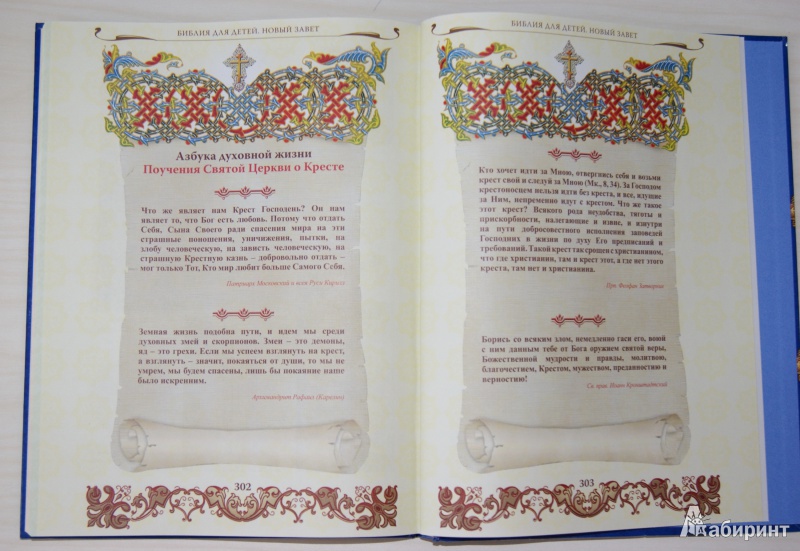 БИБЛИЯ ДЛЯ ДЕТЕЙ. НОВЫЙ ЗАВЕТ
Азбука духовной жизни
Поучения Святой Церкви о Кресте
Что же являет нам Крест Господень? Он нам
являет то, что Бог есть любовь. Потому что отдать
Себя, Сына Своего ради спасения мира на эти
страшные поношения, уничижения, пытки, на
злобу человеческую, на зависть человеческую, на
страшную Крестную казнь – добровольно отдать –
мог только Тот, Кто мир любит больше Самого Себя.
Патриарх Московский и всея Руси Кирилл
Земная жизнь подобна пути, и идем мы среди
духовных змей и скорпионов. Змеи – это демоны,
яд – это грехи. Если мы успеем взглянуть на крест,
а взглянуть – значит, покаяться от души, то мы не
умрем, мы будем спасены, лишь бы покаяние наше
было искренним.
Архимандрит Рафаил (Карелин)
302
БИБЛИЯ ДЛЯ ДЕТЕЙ. НОВЫЙ ЗАВЕТ
Кто хочет идти за Мною, отвергнись себя и возьми
крест свой и следуй за Мною (Мк., 8, 34). За Господом
крестоносцем нельзя идти без креста, и все, идущие
за Ним, непременно идут с крестом. Что же такое
этот крест? Всякого рода неудобства, тяготы и
прискорбности, налегающие и извне, и изнутри
на пути добросовестного исполнения заповедей
Господних в жизни по духу Его предписаний и
требований. Такой крест так срощен с христианином,
что где христианин, там и крест этот, а где нет этого
креста, там нет и христианина.
Прп. Феофан Затворник
Борись со всяким злом, немедленно гася его, воюй
с ним данным тебе от Бога оружием святой веры,
Божественной мудрости и правды, молитвою,
благочестием, Крестом, мужеством, преданностию и
верностию!
Св. прав. Иоанн Кронштадтский
303
Лабиринт